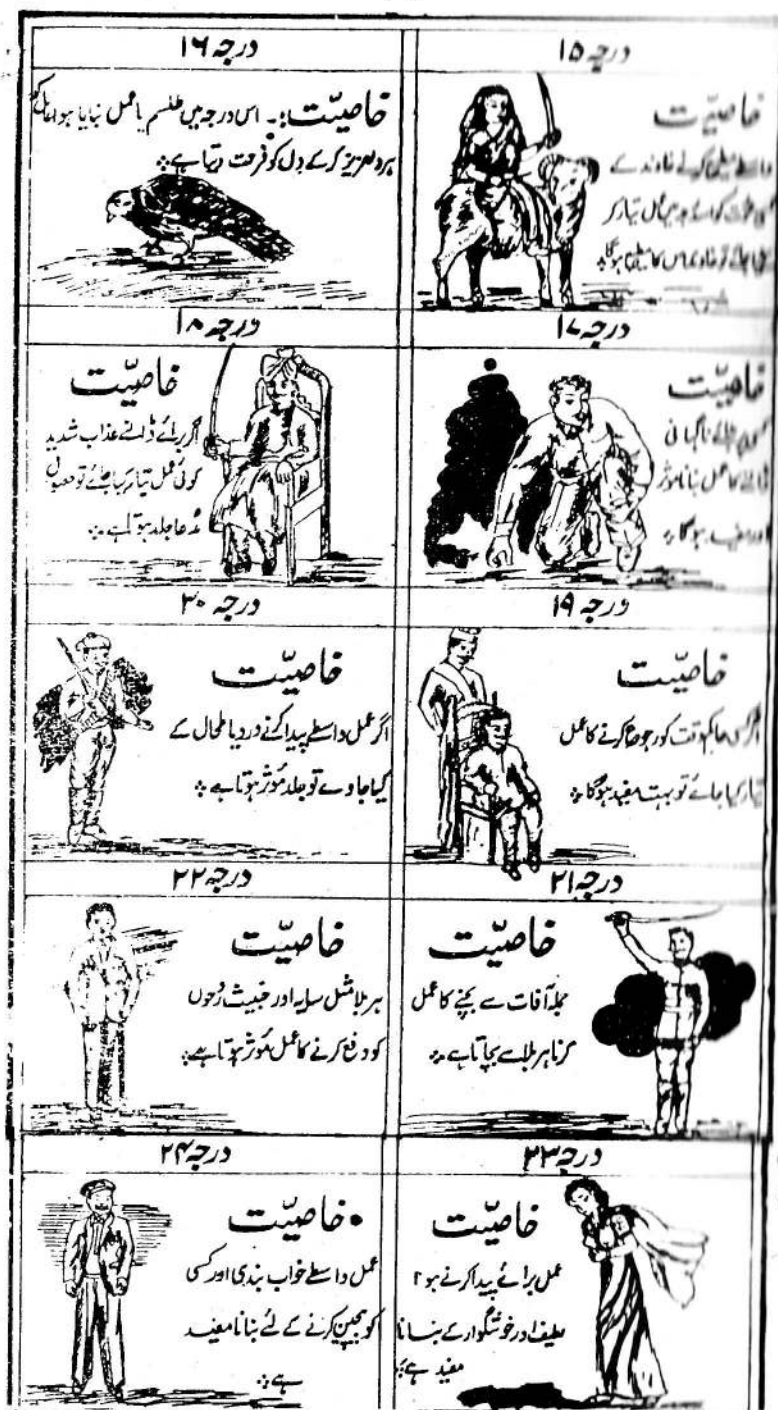 درجہ ۱۵
خاصیّت
واسطے مطیع کرنے خاوند کے
کسی عورت کو اسے عمل تیار کر
جائے تو خاوند اس کا مطیع ہوگا
درجہ ۱۶
خاصیّت:۔ اس درجہ میں طلسم یا عمل بنایا ہوا عامل کو
ہر دلعزیز کرکے دل کو فرحت دیتا ہے
درجہ ۱۷
خاصیّت
کسی پر بلائے ناگہانی
ڈالنے کا عمل بنانا موثر
اور مفید ہوگا
درجہ ۱۸
خاصیّت
اگر برائے ڈالنے عذاب شدید
کوئی عمل تیار کیا جائے تو حصول
مُدعا جلد ہوتا ہے
درجہ ۱۹
خاصیّت
اگر کسی حاکم وقت کو رجوع کرنے کا عمل
تیار کیا جائے تو بہت مفید ہوگا
درجہ ۲۰
خاصیّت
اگر عمل واسطے پیدا کرنے درد یا طحال کے
کیا جاوے تو جلد مُوثر ہوتا ہے
درجہ ۲۱
خاصیّت
جملہ آفات سے بچنے کا عمل
کرنا ہر بلا سے بچاتا ہے
درجہ ۲۲
خاصیّت
ہر بلا مثل سایہ اور خبیث رُوحوں
کو دفع کرنے کا عمل مُوثر ہوتا ہے
درجہ ۲۳
خاصیّت
عمل برائے پیدا کرنے ہوا
لطیف اور خوشگوار کے بنانا
مفید ہے
درجہ ۲۴
خاصیّت
عمل واسطے خواب بندی اور کسی
کو بیچین کرنے کے لئے بنانا مفید
ہے